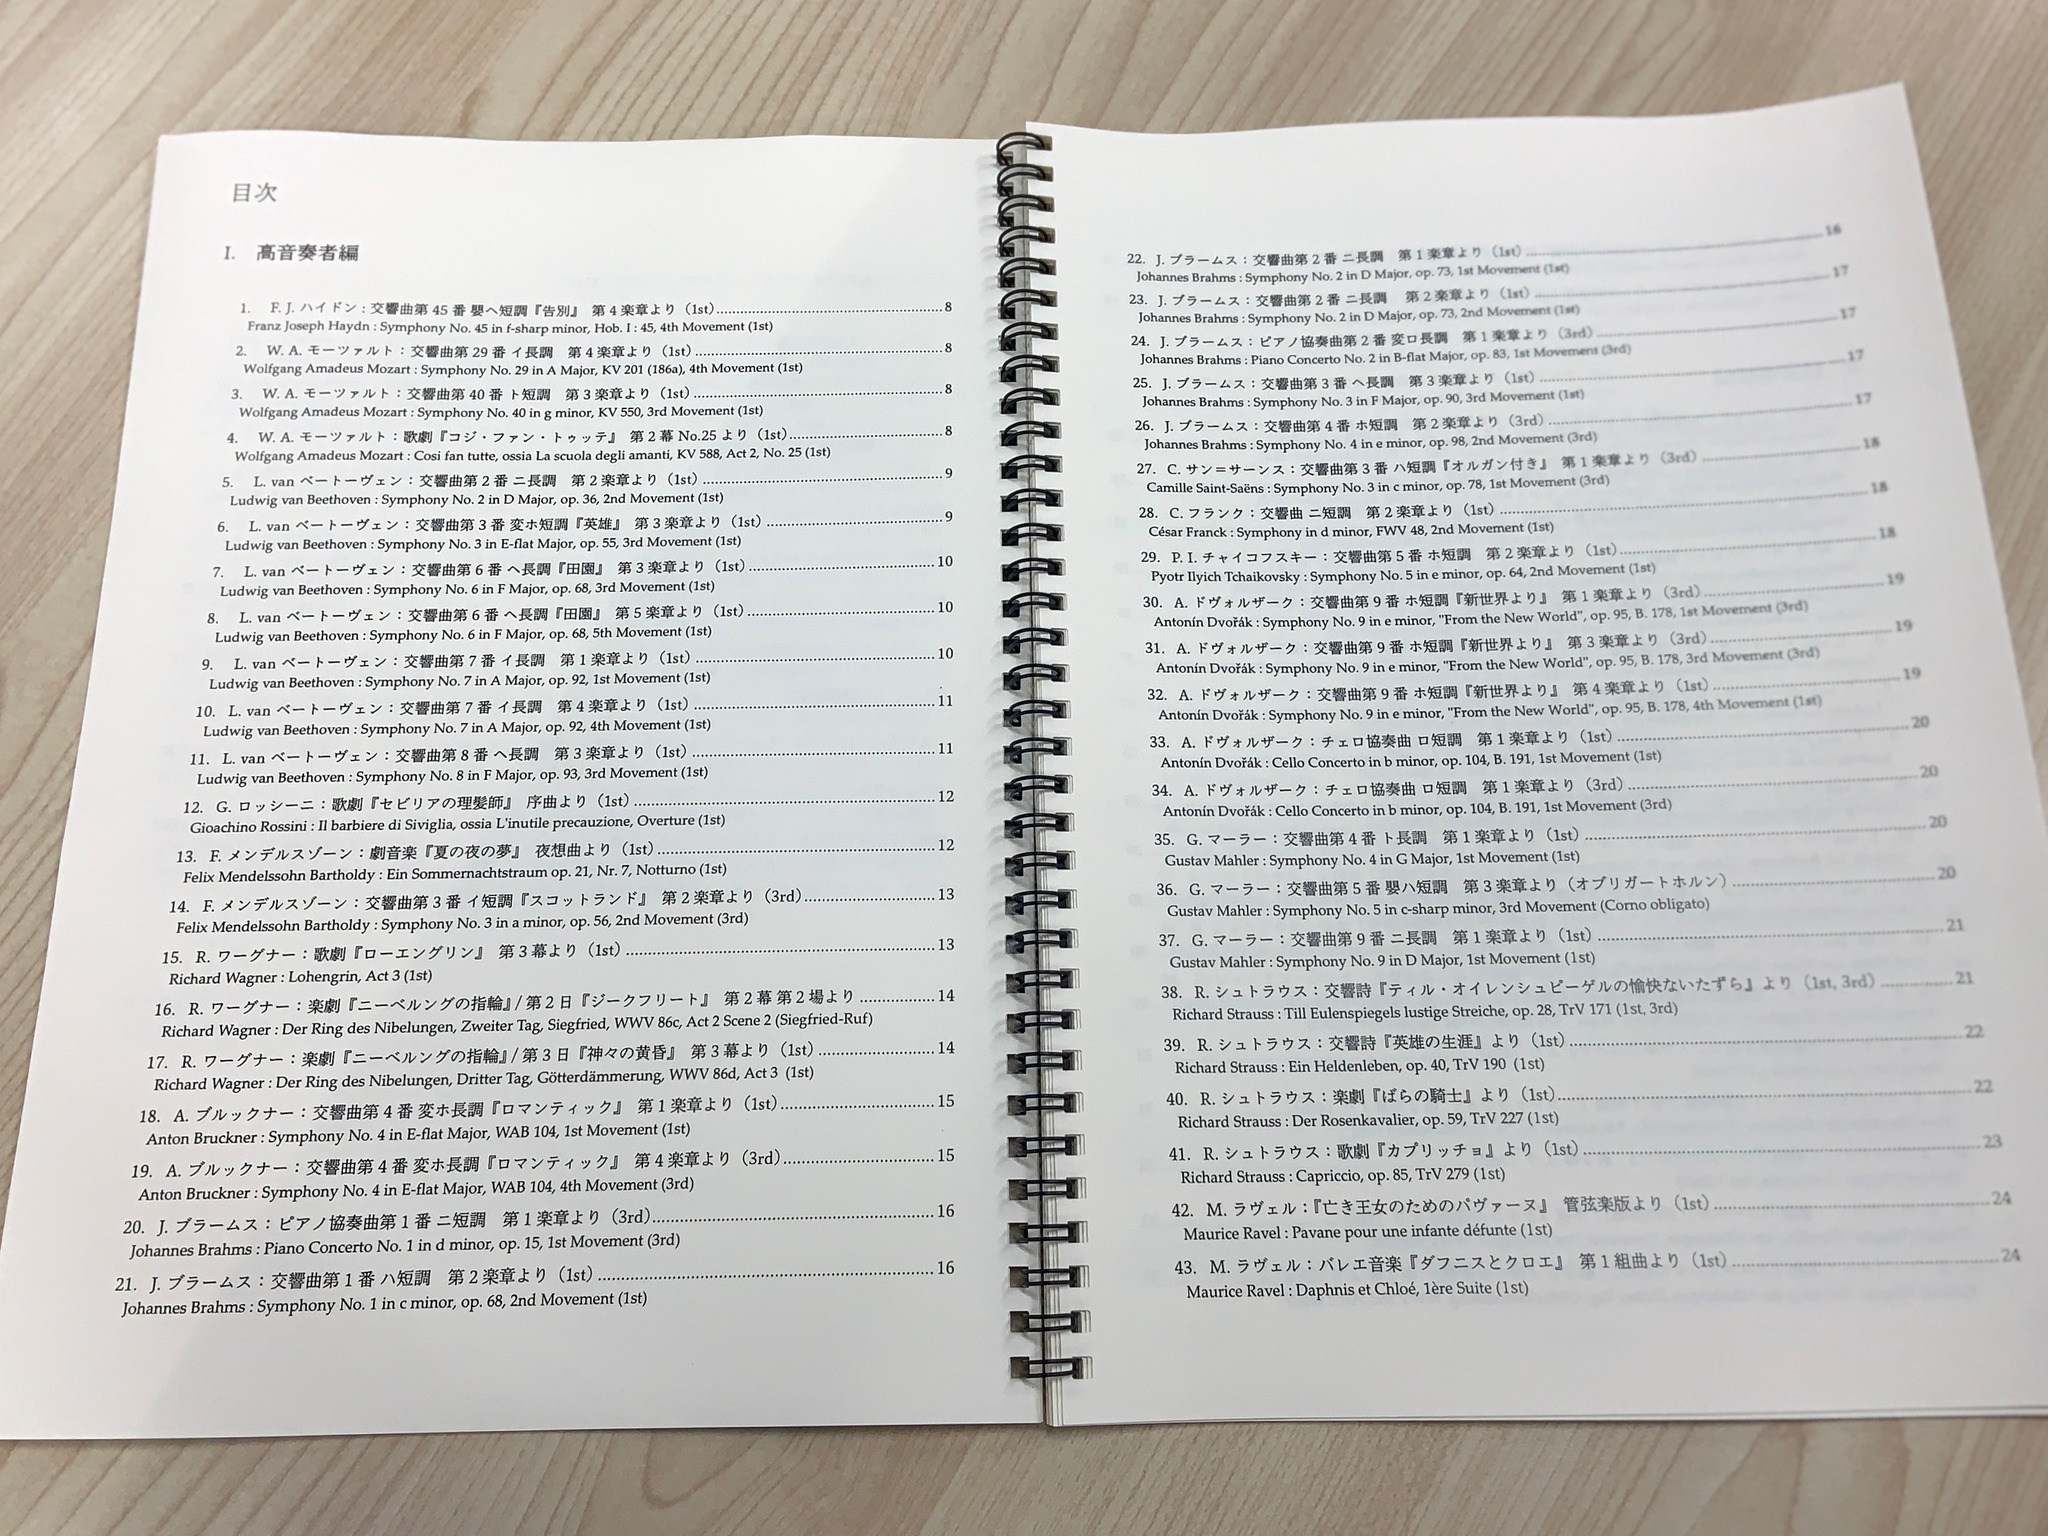 目次
I. 高音奏者編
1. F. J. ハイドン：交響曲第 45 番 嬰ヘ短調『告別』 第 4 楽章より（1st）........8
Franz Joseph Haydn : Symphony No. 45 in f-sharp minor, Hob. I : 45, 4th Movement (1st)
2. W. A. モーツァルト：交響曲第 29 番 イ長調 第 4 楽章より（1st）........8
Wolfgang Amadeus Mozart : Symphony No. 29 in A Major, KV 201 (186a), 4th Movement (1st)
3. W. A. モーツァルト：交響曲第 40 番 ト短調 第 3 楽章より（1st）........8
Wolfgang Amadeus Mozart : Symphony No. 40 in g minor, KV 550, 3rd Movement (1st)
4. W. A. モーツァルト：歌劇『コジ・ファン・トゥッテ』 第 2 幕 No.25 より（1st）........8
Wolfgang Amadeus Mozart : Cosi fan tutte, ossia La scuola degli amanti, KV 588, Act 2, No. 25 (1st)
5. L. van ベートーヴェン：交響曲第 2 番 ニ長調 第 2 楽章より（1st）........9
Ludwig van Beethoven : Symphony No. 2 in D Major, op. 36, 2nd Movement (1st)
6. L. van ベートーヴェン：交響曲第 3 番 変ホ短調『英雄』 第 3 楽章より（1st）........9
Ludwig van Beethoven : Symphony No. 3 in E-flat Major, op. 55, 3rd Movement (1st)
7. L. van ベートーヴェン：交響曲第 6 番 ヘ長調『田園』 第 3 楽章より（1st）........10
Ludwig van Beethoven : Symphony No. 6 in F Major, op. 68, 3rd Movement (1st)
8. L. van ベートーヴェン：交響曲第 6 番 ヘ長調『田園』 第 5 楽章より（1st）........10
Ludwig van Beethoven : Symphony No. 6 in F Major, op. 68, 5th Movement (1st)
9. L. van ベートーヴェン：交響曲第 7 番 イ長調 第 1 楽章より（1st）........10
Ludwig van Beethoven : Symphony No. 7 in A Major, op. 92, 1st Movement (1st)
10. L. van ベートーヴェン：交響曲第 7 番 イ長調 第 4 楽章より（1st）........11
Ludwig van Beethoven : Symphony No. 7 in A Major, op. 92, 4th Movement (1st)
11. L. van ベートーヴェン：交響曲第 8 番 ヘ長調 第 3 楽章より（1st）........11
Ludwig van Beethoven : Symphony No. 8 in F Major, op. 93, 3rd Movement (1st)
12. G. ロッシーニ：歌劇『セビリアの理髪師』 序曲より（1st）........12
Gioachino Rossini : Il barbiere di Siviglia, ossia L'inutile precauzione, Overture (1st)
13. F. メンデルスゾーン：劇音楽『夏の夜の夢』 夜想曲より（1st）........12
Felix Mendelssohn Bartholdy : Ein Sommernachtstraum op. 21, Nr. 7, Notturno (1st)
14. F. メンデルスゾーン：交響曲第 3 番 イ短調『スコットランド』 第 2 楽章より（3rd）........13
Felix Mendelssohn Bartholdy : Symphony No. 3 in a minor, op. 56, 2nd Movement (3rd)
15. R. ワーグナー：歌劇『ローエングリン』 第 3 幕より（1st）........13
Richard Wagner : Lohengrin, Act 3 (1st)
16. R. ワーグナー：楽劇『ニーベルングの指輪』/ 第 2 日『ジークフリート』 第 2 幕 第 2 場より........14
Richard Wagner : Der Ring des Nibelungen, Zweiter Tag, Siegfried, WWV 86c, Act 2 Scene 2 (Siegfried-Ruf)
17. R. ワーグナー：楽劇『ニーベルングの指輪』/ 第 3 日『神々の黄昏』 第 3 幕より（1st）........14
Richard Wagner : Der Ring des Nibelungen, Dritter Tag, Götterdämmerung, WWV 86d, Act 3 (1st)
18. A. ブルックナー：交響曲第 4 番 変ホ長調『ロマンティック』 第 1 楽章より（1st）........15
Anton Bruckner : Symphony No. 4 in E-flat Major, WAB 104, 1st Movement (1st)
19. A. ブルックナー：交響曲第 4 番 変ホ長調『ロマンティック』 第 4 楽章より（3rd）........15
Anton Bruckner : Symphony No. 4 in E-flat Major, WAB 104, 4th Movement (3rd)
20. J. ブラームス：ピアノ協奏曲第 1 番 ニ短調 第 1 楽章より（3rd）........16
Johannes Brahms : Piano Concerto No. 1 in d minor, op. 15, 1st Movement (3rd)
21. J. ブラームス：交響曲第 1 番 ハ短調 第 2 楽章より（1st）........16
Johannes Brahms : Symphony No. 1 in c minor, op. 68, 2nd Movement (1st)
22. J. ブラームス：交響曲第 2 番 ニ長調 第 1 楽章より（1st）........16
Johannes Brahms : Symphony No. 2 in D Major, op. 73, 1st Movement (1st)
23. J. ブラームス：交響曲第 2 番 ニ長調 第 2 楽章より（1st）........17
Johannes Brahms : Symphony No. 2 in D Major, op. 73, 2nd Movement (1st)
24. J. ブラームス：ピアノ協奏曲第 2 番 変ロ長調 第 1 楽章より（3rd）........17
Johannes Brahms : Piano Concerto No. 2 in B-flat Major, op. 83, 1st Movement (3rd)
25. J. ブラームス：交響曲第 3 番 ヘ長調 第 3 楽章より（1st）........17
Johannes Brahms : Symphony No. 3 in F Major, op. 90, 3rd Movement (1st)
26. J. ブラームス：交響曲第 4 番 ホ短調 第 2 楽章より（3rd）........17
Johannes Brahms : Symphony No. 4 in e minor, op. 98, 2nd Movement (3rd)
27. C. サン＝サーンス：交響曲第 3 番 ハ短調『オルガン付き』 第 1 楽章より（3rd）........18
Camille Saint-Saëns : Symphony No. 3 in c minor, op. 78, 1st Movement (3rd)
28. C. フランク：交響曲 ニ短調 第 2 楽章より（1st）........18
César Franck : Symphony in d minor, FWV 48, 2nd Movement (1st)
29. P. I. チャイコフスキー：交響曲第 5 番 ホ短調 第 2 楽章より（1st）........18
Pyotr Ilyich Tchaikovsky : Symphony No. 5 in e minor, op. 64, 2nd Movement (1st)
30. A. ドヴォルザーク：交響曲第 9 番 ホ短調『新世界より』 第 1 楽章より（3rd）........19
Antonín Dvořák : Symphony No. 9 in e minor, "From the New World", op. 95, B. 178, 1st Movement (3rd)
31. A. ドヴォルザーク：交響曲第 9 番 ホ短調『新世界より』 第 3 楽章より（3rd）........19
Antonín Dvořák : Symphony No. 9 in e minor, "From the New World", op. 95, B. 178, 3rd Movement (3rd)
32. A. ドヴォルザーク：交響曲第 9 番 ホ短調『新世界より』 第 4 楽章より（1st）........19
Antonín Dvořák : Symphony No. 9 in e minor, "From the New World", op. 95, B. 178, 4th Movement (1st)
33. A. ドヴォルザーク：チェロ協奏曲 ロ短調 第 1 楽章より（1st）........20
Antonín Dvořák : Cello Concerto in b minor, op. 104, B. 191, 1st Movement (1st)
34. A. ドヴォルザーク：チェロ協奏曲 ロ短調 第 1 楽章より（3rd）........20
Antonín Dvořák : Cello Concerto in b minor, op. 104, B. 191, 1st Movement (3rd)
35. G. マーラー：交響曲第 4 番 ト長調 第 1 楽章より（1st）........20
Gustav Mahler : Symphony No. 4 in G Major, 1st Movement (1st)
36. G. マーラー：交響曲第 5 番 嬰ハ短調 第 3 楽章より（オブリガートホルン）........20
Gustav Mahler : Symphony No. 5 in c-sharp minor, 3rd Movement (Corno obligato)
37. G. マーラー：交響曲第 9 番 ニ長調 第 1 楽章より（1st）........21
Gustav Mahler : Symphony No. 9 in D Major, 1st Movement (1st)
38. R. シュトラウス：交響詩『ティル・オイレンシュピーゲルの愉快ないたずら』より（1st, 3rd）........21
Richard Strauss : Till Eulenspiegels lustige Streiche, op. 28, TrV 171 (1st, 3rd)
39. R. シュトラウス：交響詩『英雄の生涯』より（1st）........22
Richard Strauss : Ein Heldenleben, op. 40, TrV 190 (1st)
40. R. シュトラウス：楽劇『ばらの騎士』より（1st）........22
Richard Strauss : Der Rosenkavalier, op. 59, TrV 227 (1st)
41. R. シュトラウス：歌劇『カプリッチョ』より（1st）........23
Richard Strauss : Capriccio, op. 85, TrV 279 (1st)
42. M. ラヴェル：『亡き王女のためのパヴァーヌ』 管弦楽版より（1st）........24
Maurice Ravel : Pavane pour une infante défunte (1st)
43. M. ラヴェル：バレエ音楽『ダフニスとクロエ』 第 1 組曲より（1st）........24
Maurice Ravel : Daphnis et Chloé, 1ère Suite (1st)